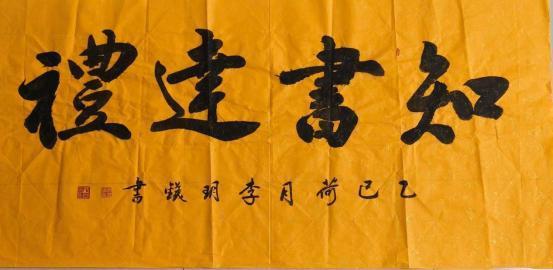 知書達禮
乙巳荷月李玥書